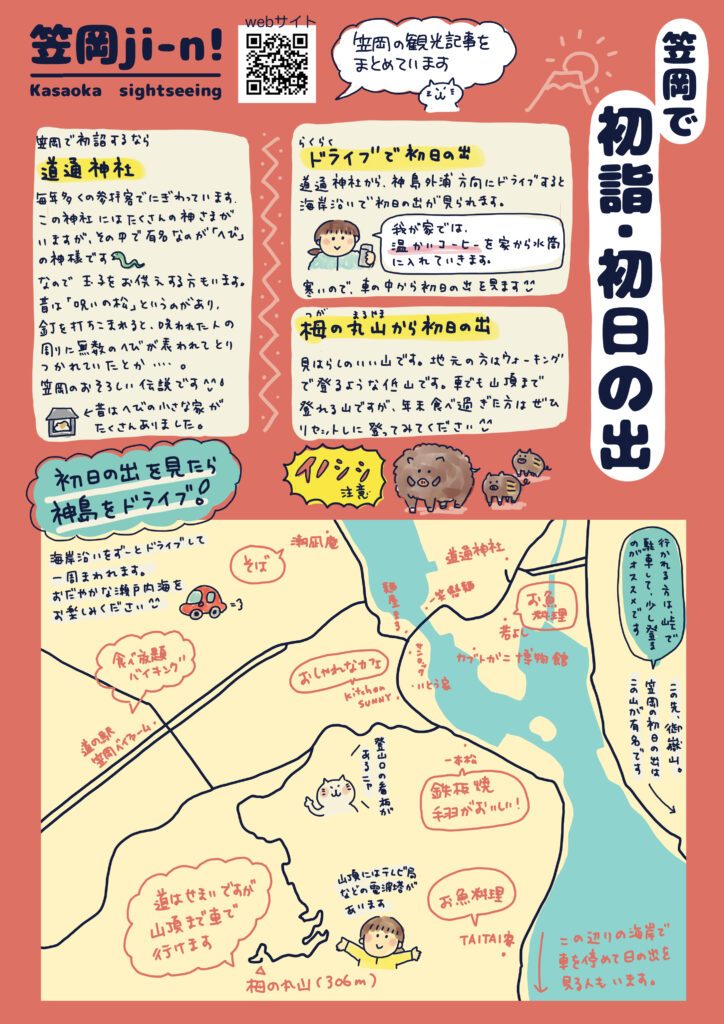 笠岡ji-n!
Kasaoka sightseeing
webサイト
笠岡の観光記事を
まとめています
笠岡で
初詣・初日の出
笠岡で初詣するなら
道通神社
毎年多くの参拝客でにぎわっています。
この神社にはたくさんの神さまが
いますが、その中で有名なのが「へび」
の神様です
なので玉子をお供えする方もいます。
昔は「呪いの松」というのがあり、
釘を打ちこまれると、呪われた人の
周りに無数のへびが表われてとり
つかれていたとか・・・・。
笠岡のおそろしい伝説です
←昔はへびの小さな家が
たくさんありました。
らくらく
ドライブで初日の出
道通神社から、神島外浦方向にドライブすると
海岸沿いで初日の出が見られます。
我が家では、
温かいコーヒーを家から水筒
に入れていきます。
寒いので、車の中から初日の出を見ます
つが まるやま
栂の丸山から初日の出
見はらしのいい山です。地元の方はウォーキング
で登るような低山です。車でも山頂まで
登れる山ですが、年末食べ過ぎた方はぜひ
リセットしに登ってみてください
初日の出を見たら
神島をドライブ!
イノシシ
注意
海岸沿いをずーとドライブして
一周まわれます。
おだやかな瀬戸内海を
お楽しみください
そば
潮凪庵
道通神社
麺屋まる
一笑懸麺
お魚
料理
若よし
カブトガニ博物館
サンロック
いとう家
おしゃれなカフェ
Kitchen
SUNNY
食べ放題
バイキング
道の駅
笠岡ベイファーム
行かれる方は、峠で
駐車して、少し登る
のがオススメです
この先、御嶽山。
笠岡の初日の出は
この山が有名です
登山口の看板が
あるニャ
一本松
鉄板焼
手羽がおいしい!
道はせまいですが
山頂まで車で
行けます
山頂にはテレビ局
などの電波塔が
あります
お魚料理
TAITAI家
栂の丸山(306m)
この辺りの海岸で
車を停めて日の出を
見る人もいます。